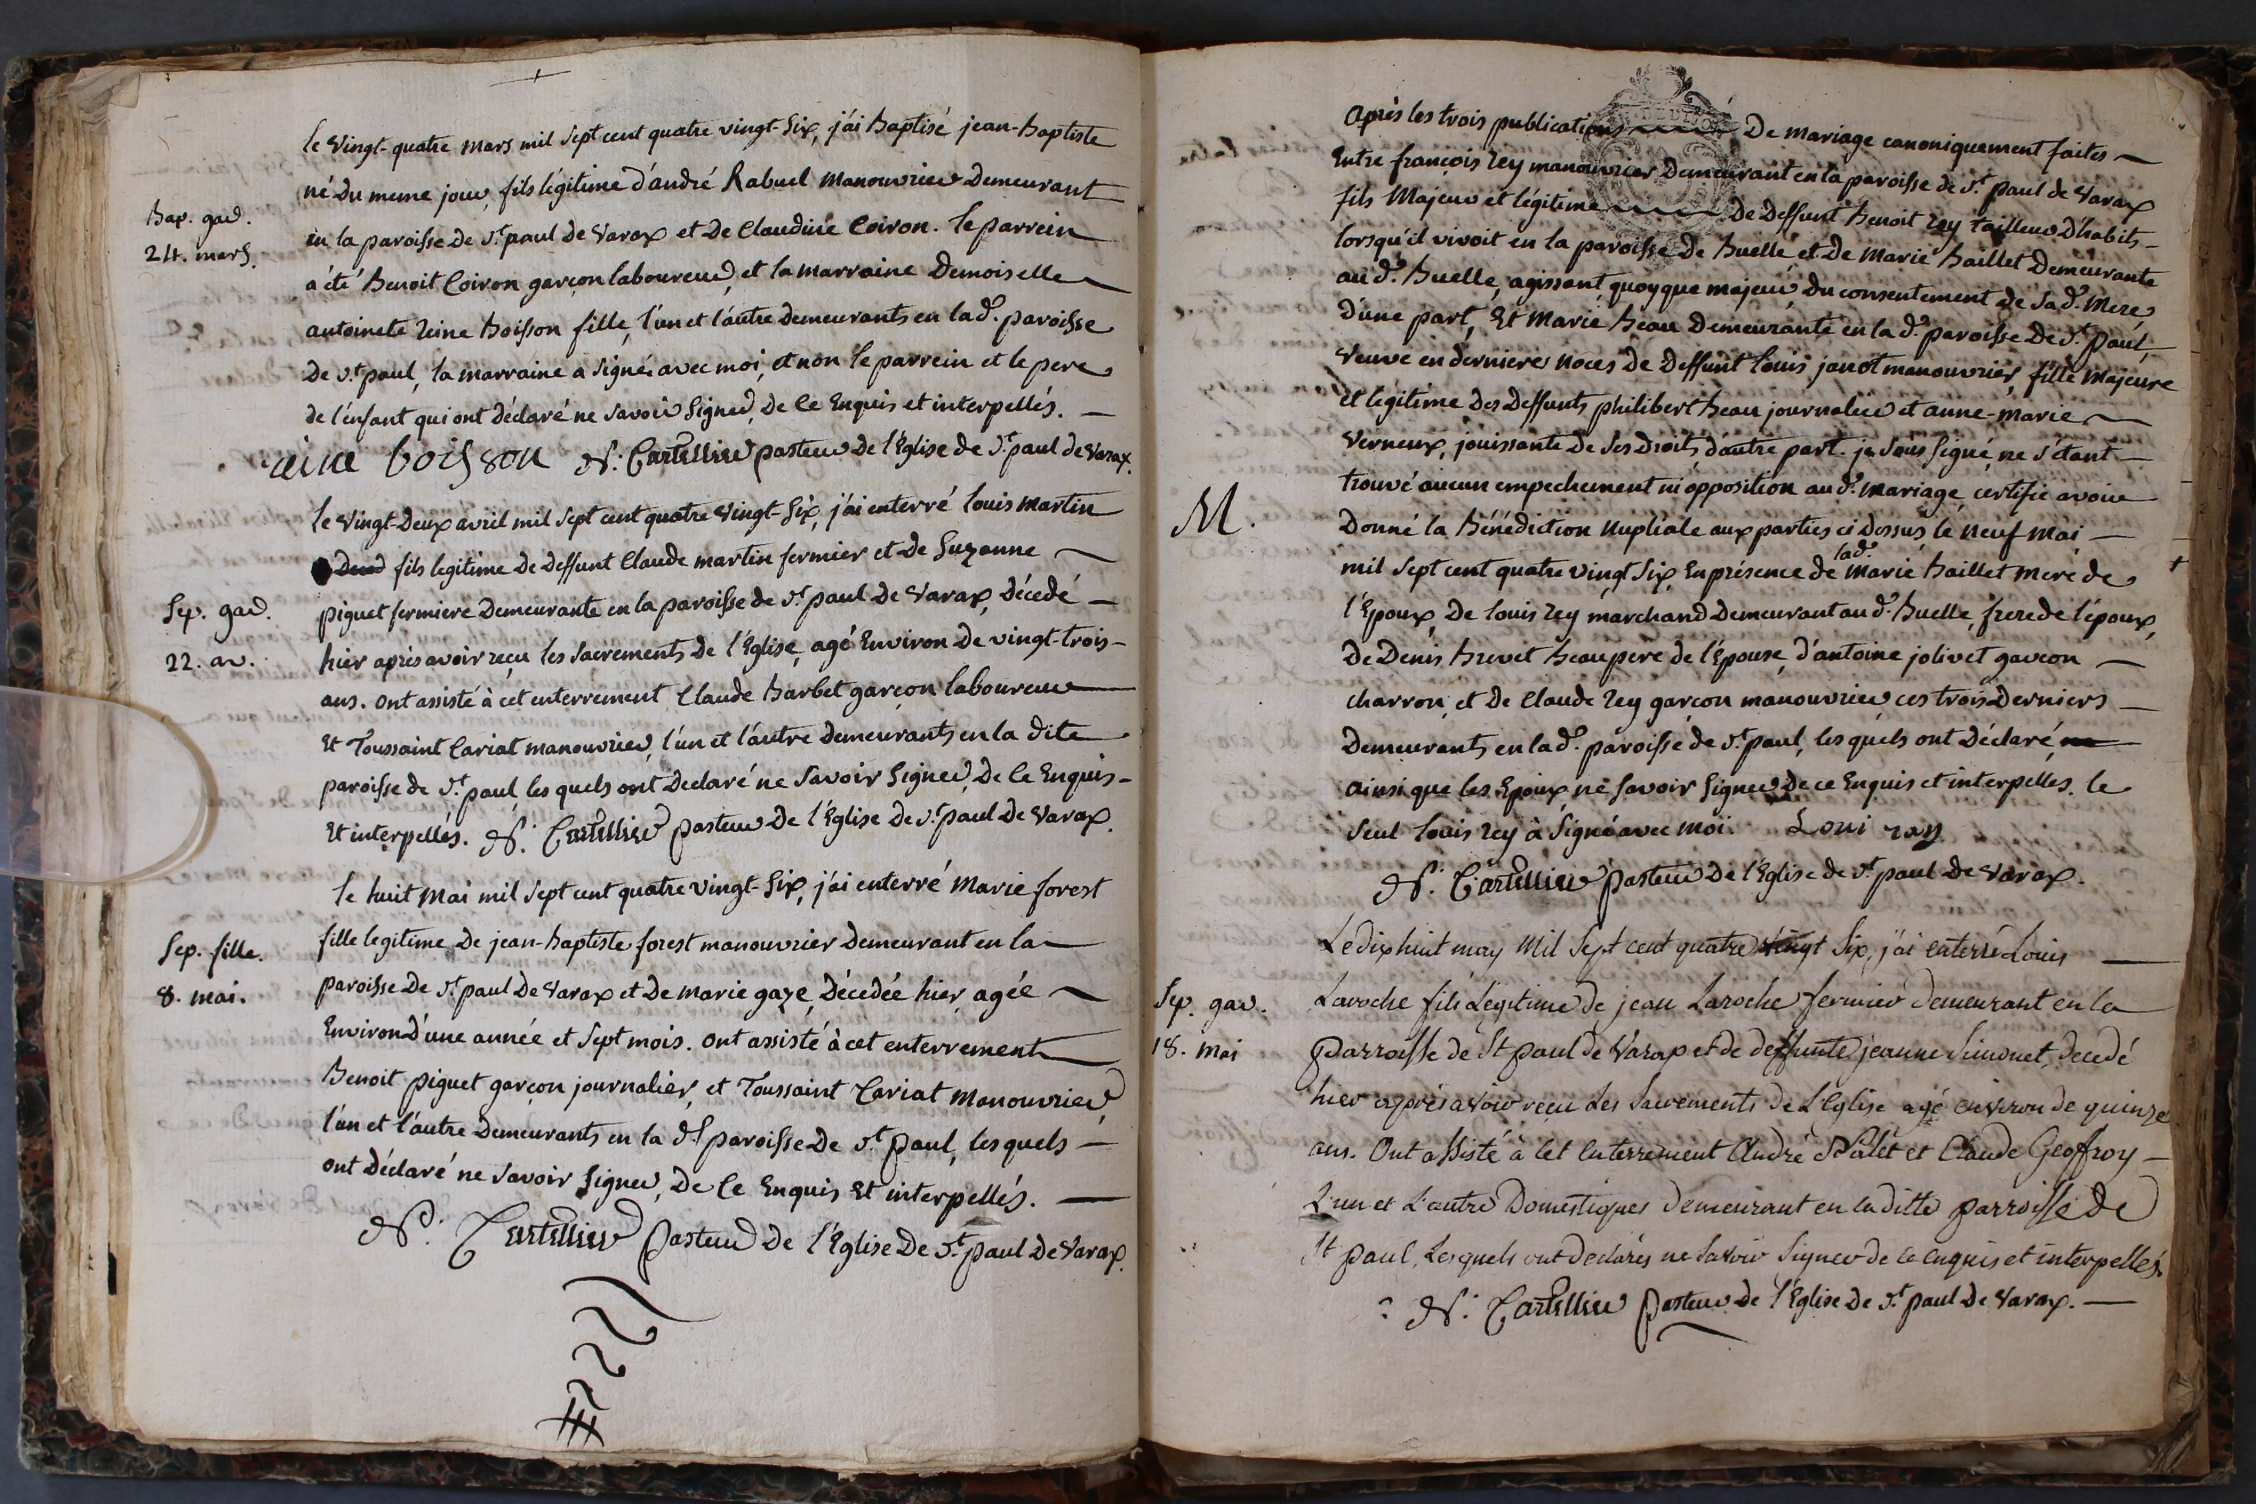 le vingt-quatre mars mil sept cent quatre vingt-six, j'ai baptisé jean-baptiste
né du meme jour, fils légitime d'andré Rabuel manouvrier demeurant
bap. gar.
24. mars.
en la paroisse de st. paul de varax et de Claudine Coiron. le parrein
a été benoit Coiron garçon laboureur, et la marraine demoiselle
antoinete reine boisson fille, l'un et l'autre demeurants en la de. paroisse
de st. paul, la marraine a signé avec moi, et non le parrein et le pere
de l'enfant qui ont déclaré ne savoir signer, de ce enquis et interpellés.
reine boisson N. Cartellier pasteur de l'Eglise de st. paul de varax.
le vingt-deux avril mil sept cent quatre vingt-six, j'ai enterré louis martin
fils legitime de deffunt Claude martin fermier et de suzanne
Sep. gar.
22. av.
piguet fermiere demeurante en la paroisse de st. paul de varax, décedé
hier après avoir reçu les sacrements de l'Eglise, agé environ de vingt-trois
ans. ont assisté à cet enterrement Claude barbet garçon laboureur
et Toussaint Cariat manouvrier, l'un et l'autre demeurants en la dite
paroisse de st. paul, les quels ont declaré ne savoir signer, de ce enquis
et interpellés. N. Cartellier pasteur de l'Eglise de st. paul de varax.
le huit mai mil sept cent quatre vingt-six, j'ai enterré marie forest
Sep. fille.
8. mai.
fille legitime de jean-baptiste forest manouvrier demeurant en la
paroisse de st. paul de varax et de marie gaze, décedée hier, agée
environ d'une année et sept mois. ont assisté à cet enterrement
Benoit piguet garçon journalier, et Toussaint Cariat manouvrier,
l'un et l'autre demeurants en la de. paroisse de st. paul, les quels
ont déclaré ne savoir signer, de ce enquis et interpellés.
N. Cartellier pasteur de l'Eglise de st. paul de varax.
après les trois publications de mariage canoniquement faites
entre françois rey manouvrier demeurant en la paroisse de st. paul de varax
fils majeur et légitime de deffunt benoit rey tailleur d'habits
lorsqu'il vivoit en la paroisse de buelle et de marie baillet demeurante
au d. buelle, agissant quoyque majeur du consentement de sa d. mere,
d'une part, et marie beau demeurante en la de. paroisse de st. paul,
veuve en derniere noces de deffunt louis janot manouvrier, fille majeure
et légitime des deffunts philibert beau journalier et anne-marie
verneux, jouissante de ses droits, d'autre part. je sous signé, ne s'étant
M.
trouvé aucun empechement ni opposition au d. mariage, certifie avoir
donné la bénédiction nuptiale aux parties ci dessus, le neuf mai
mil sept cent quatre vingt six, en présence de lad. marie baillet mere de
l'époux, de louis rey marchand demeurant au d. buelle, frere de l'époux,
de denis brevet beaupere de l'épouse, d'antoine jolivet garçon
charron, et de Claude rey garçon manouvrier, ces trois derniers
demeurants en la d. paroisse de st. paul, les quels ont déclaré ne
ainsi que les epoux ne savoir signer, de ce enquis et interpellés. le
seul louis rey à signé avec moi. Loui rey
N. Cartellier pasteur de l'Eglise de st. paul de varax.
Le dix huit may mil sept cent quatre vingt six, j'ai enterré Louis
Sep. gar.
18. mai
Laroche fils Légitime de jean Laroche fermier demeurant en la
parroisse de St paul de varax et de deffunte jeanne Simonet, decedé
hier après avoir reçu Les Sacrements de L'Eglise agé environ de quinze
ans. Ont assisté à cet enterrement André et Claude Geoffroy
L'un et L'autre Domestiques demeurant en laditte parroisse de
St paul, Lesquels ont declarés ne savoir signer de ce enquis et interpellés.
N. Cartellier pasteur de l'Eglise de st. paul de varax.